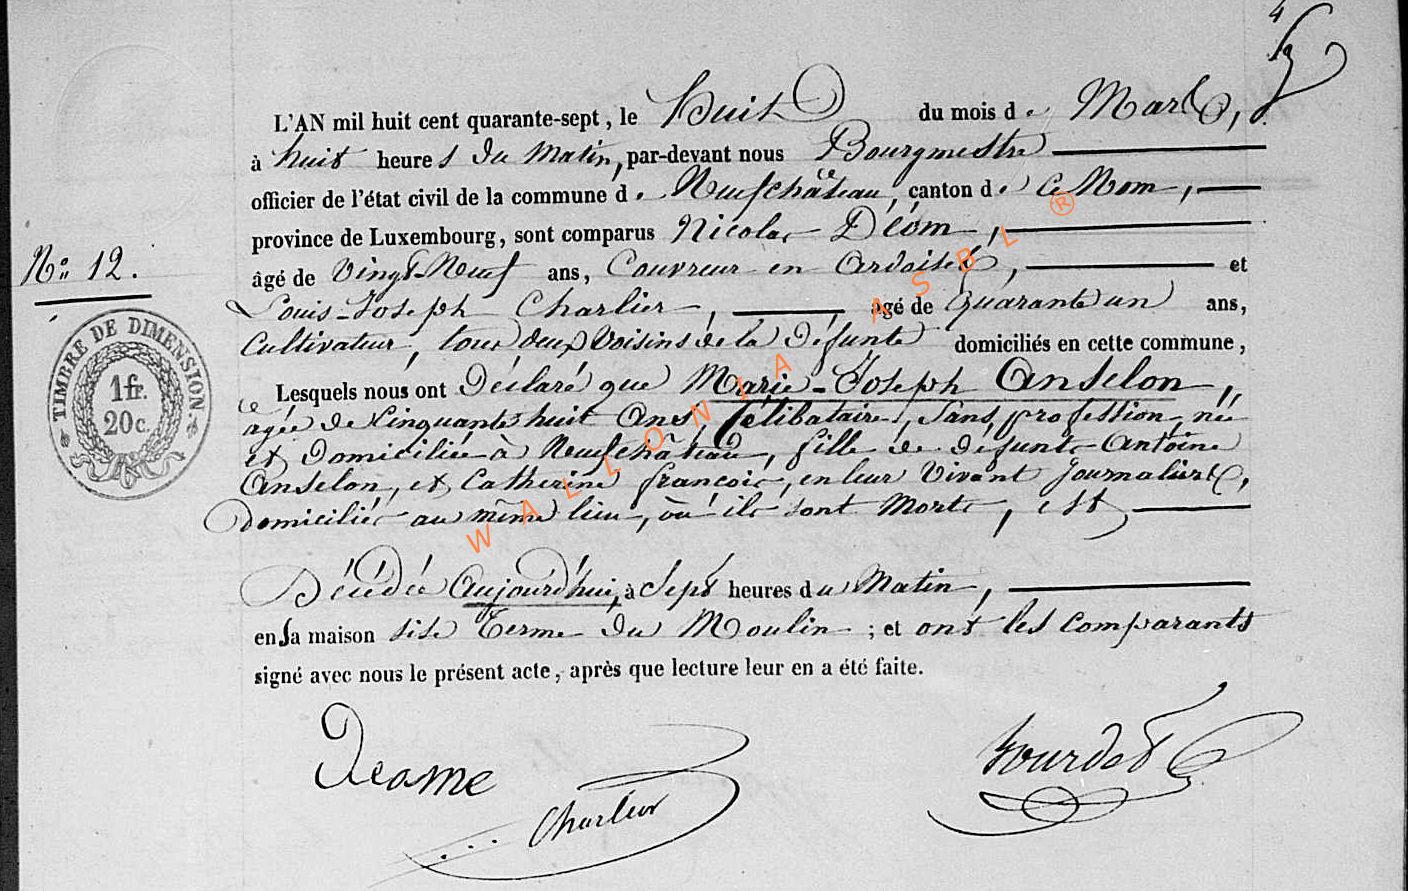 L'AN mil huit cent quarante-sept, le huit du mois de Mars,
à huit heures du Matin, par-devant nous Bourgmestre
officier de l'état civil de la commune de Neufchâteau, canton de Ce Nom,
province de Luxembourg, sont comparus Nicolas Déom,
N° 12.
âgé de Vingt-Neuf ans, Couvreur en Ardoises, et
Louis-Joseph Charlier, âgé de Quarante un ans,
Cultivateur, tous deux Voisins de la Défunte domiciliés en cette commune,
Lesquels nous ont Déclaré que Marie-Joseph Anselon,
agée de Cinquante huit Ans, Célibataire, Sans profession, née
et Domiciliée à Neufchâteau, fille de défunts Antoine
Anselon, et Catherine francois, en leur Vivant Journaliers,
Domiciliés au même lieu, où ils sont Morts, est
Décédée Aujourd'hui, à Sept heures du Matin,
en sa maison sise Terme du Moulin ; et ont les Comparants
signé avec nous le présent acte, après que lecture leur en a été faite.
TIMBRE DE DIMENSION
1 fr.
20 c.
Deome
Charlier
Bourdet
WALLONIA ASBL ®